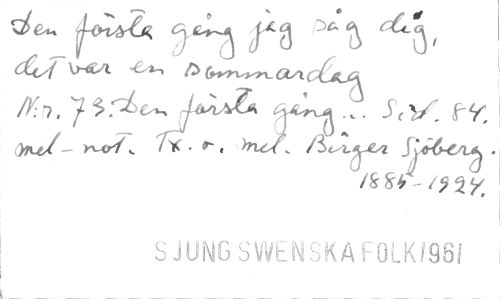 Den första gång jag såg dig,
det var en sommardag
N:r. 73. Den första gång... Sid. 84.
mel-not. Tx. o. mel. Birger Sjöberg.
1885-1924.
SJUNG SWENSKA FOLK 1961